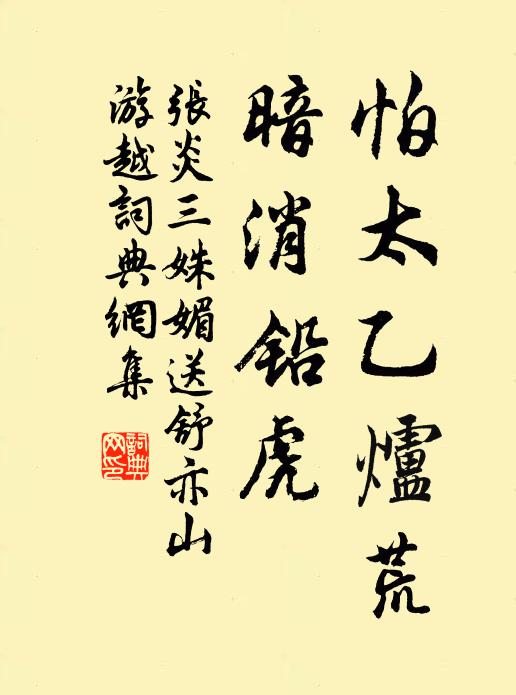 怕太乙爐荒
暗消鉛虎
張炎三姝媚送舒亦山
游越詞典網集
詞典網印